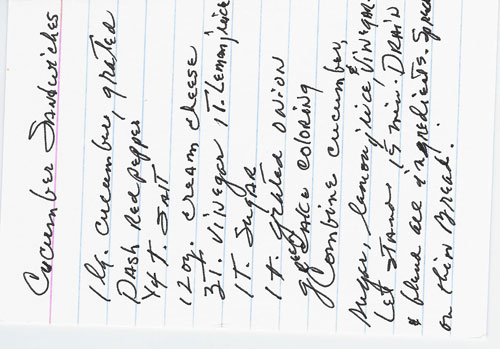 Cucumber Sandwiches
1 lg. cucumber, grated
Dash Red pepper
1/4 t. SAIT
12 oz. cream cheese
3 T. Vinegar 1T. Lemon juice
1 T. SUGAR
1 t. grated ONION
green CAKE COLORING
Combine cucumber,
sugar, lemon juice & vinegar
Let STAND 15 min DRAIN
& blend all ingredients. Spread
on thin Bread.